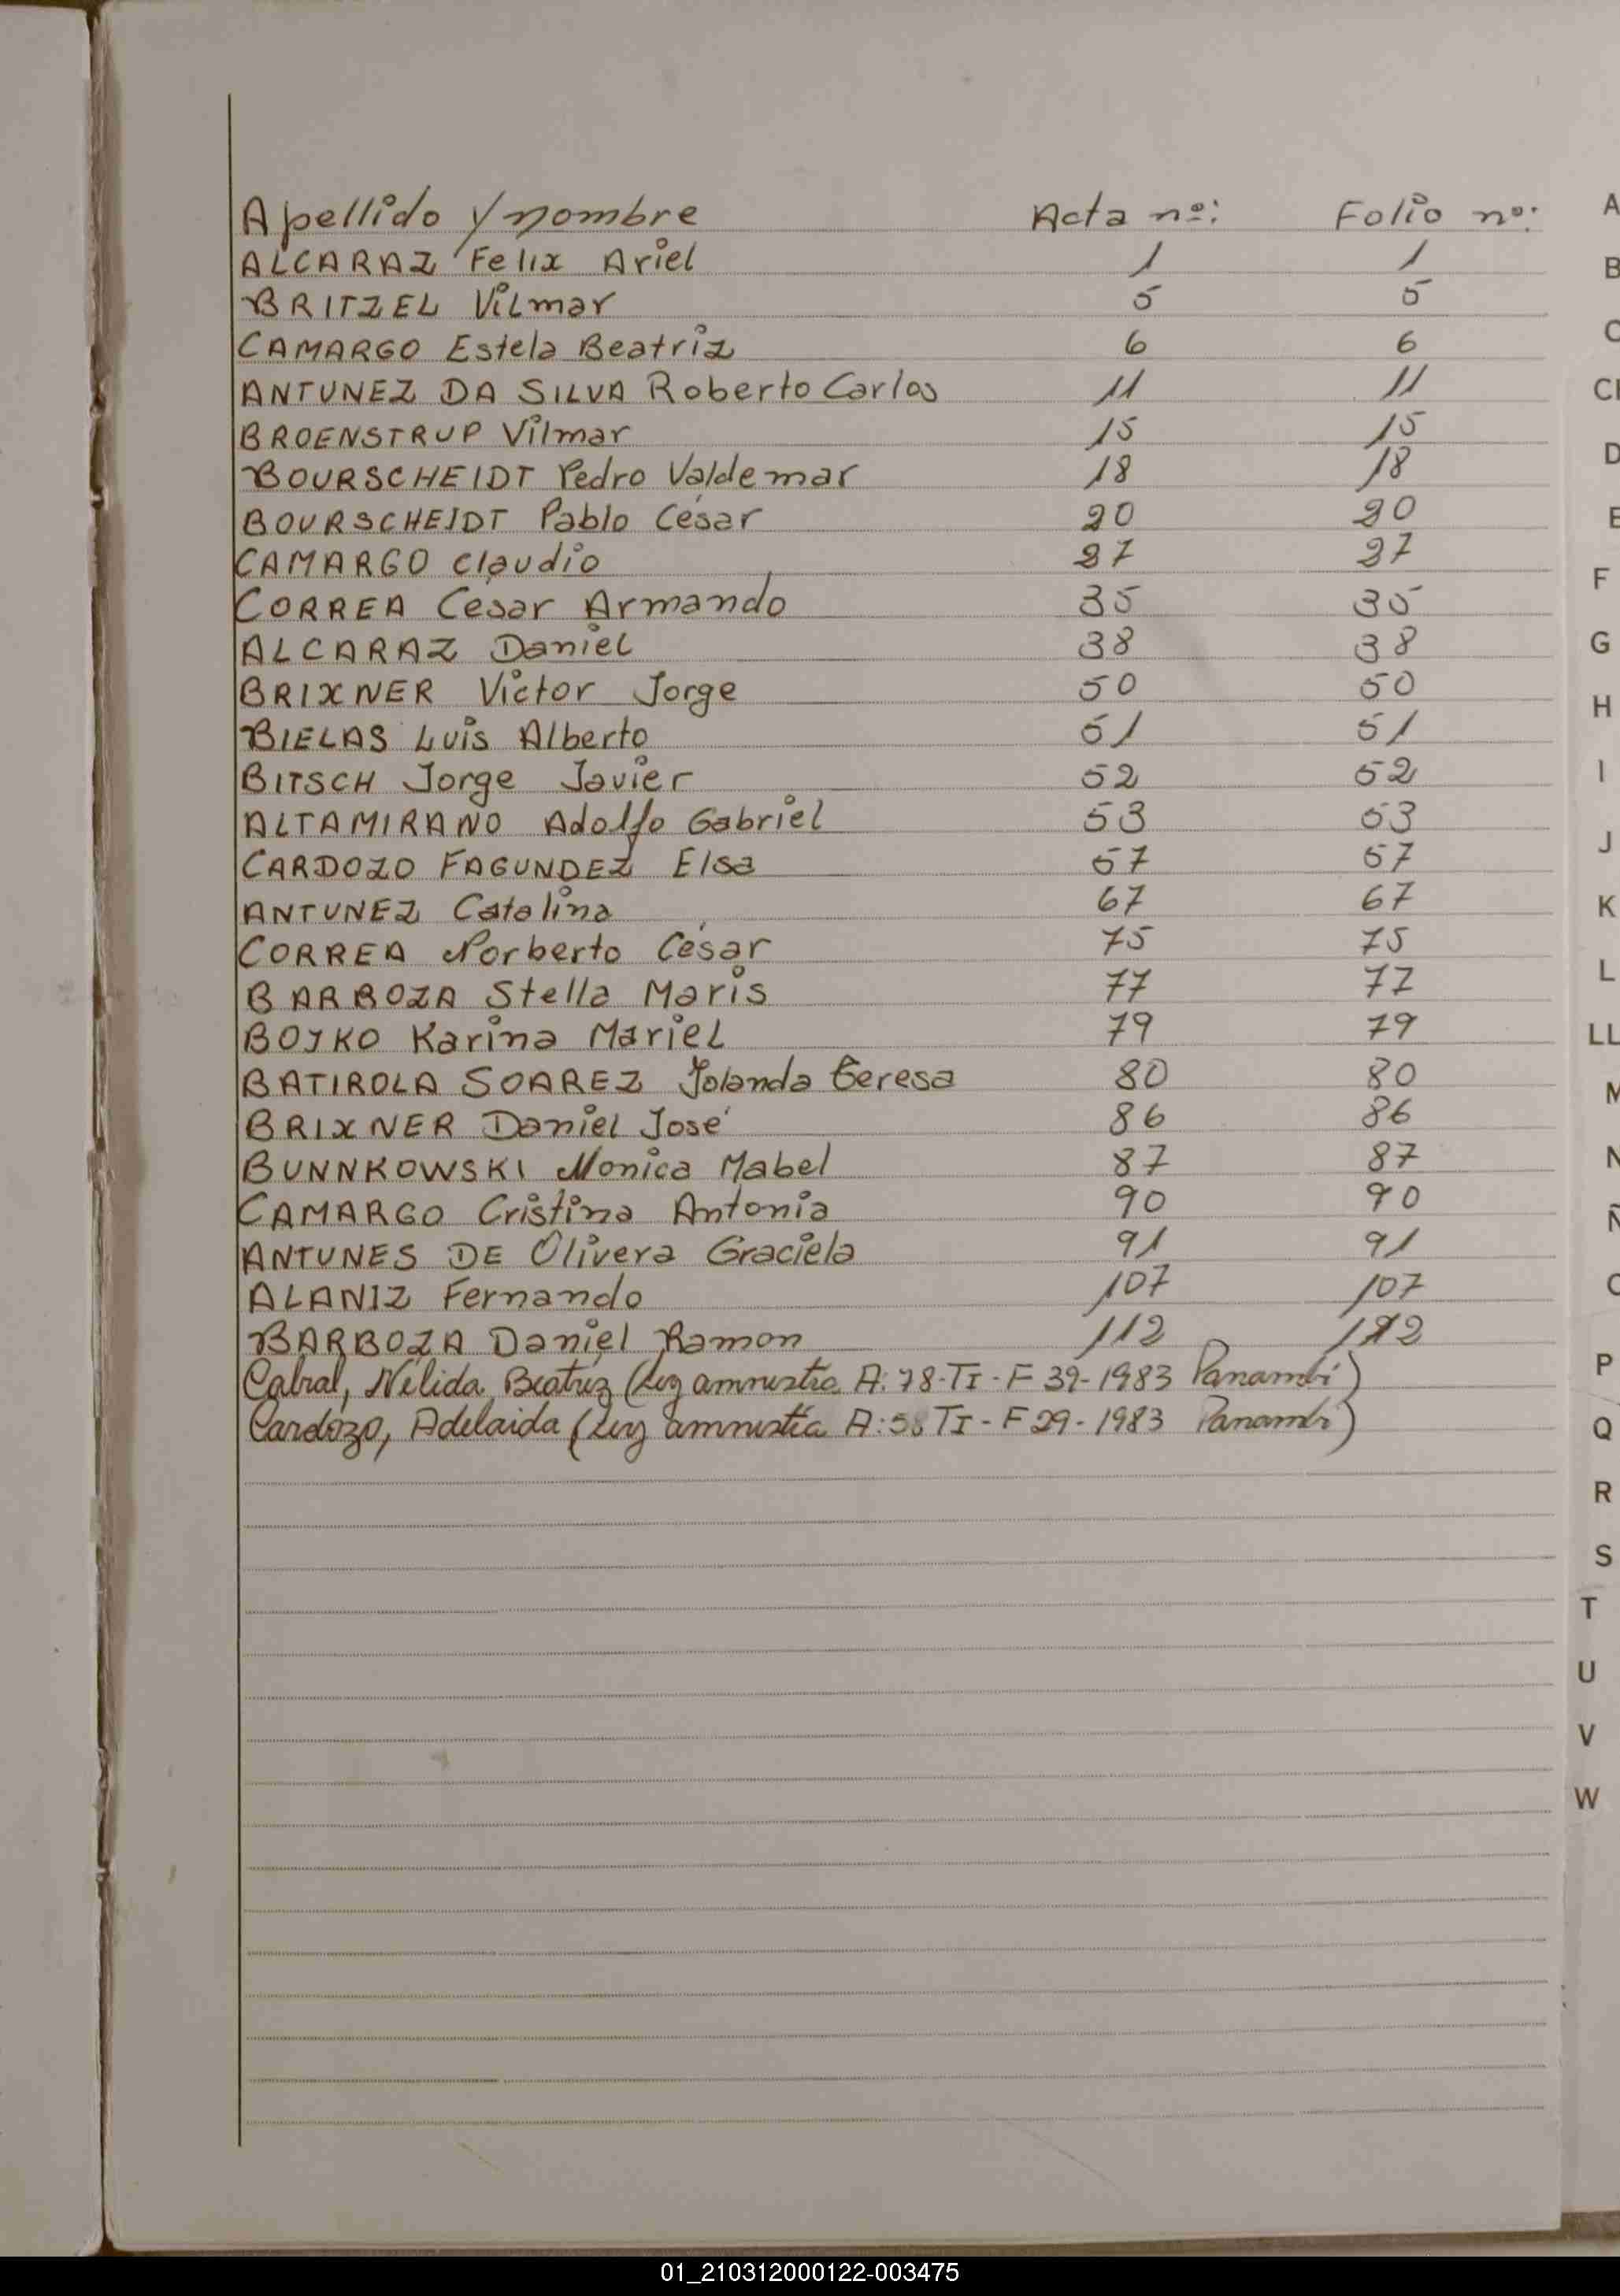 Apellido y nombre Acta nº: Folio nº:
ALCARAZ Felix Ariel 1 1
BRITZEL Vilmar 5 5
CAMARGO Estela Beatriz 6 6
ANTUNEZ DA SILVA Roberto Carlos 11 11
BROENSTRUP Vilmar 15 15
BOURSCHEIDT Pedro Valdemar 18 18
BOURSCHEIDT Pablo César 20 20
CAMARGO Claudio 27 27
CORREA César Armando 35 35
ALCARAZ Daniel 38 38
BRIXNER Victor Jorge 50 50
BIELAS Luis Alberto 51 51
BITSCH Jorge Javier 52 52
ALTAMIRANO Adolfo Gabriel 53 53
CARDOZO FAGUNDEZ Elsa 57 57
ANTUNEZ Catalina 67 67
CORREA Norberto César 75 75
BARBOZA Stella Maris 77 77
BOJKO Karina Mariel 79 79
BATIROLA SOAREZ Jolanda Teresa 80 80
BRIXNER Daniel José 86 86
BUNNKOWSKI Monica Mabel 87 87
CAMARGO Cristina Antonia 90 90
ANTUNES DE Olivera Graciela 91 91
ALANIZ Fernando 107 107
BARBOZA Daniel Ramon 112 112
Cabral, Nélida Beatriz (Ley amnistia A: 78-TI-F 39-1983 Panambí)
Cardozo, Adelaida (Ley amnistía A: TI-F 29-1983 Panambí)
A
B
C
CH
D
E
F
G
H
I
J
K
L
LL
M
N
Ñ
O
P
Q
R
S
T
U
V
W
01_210312000122-003475